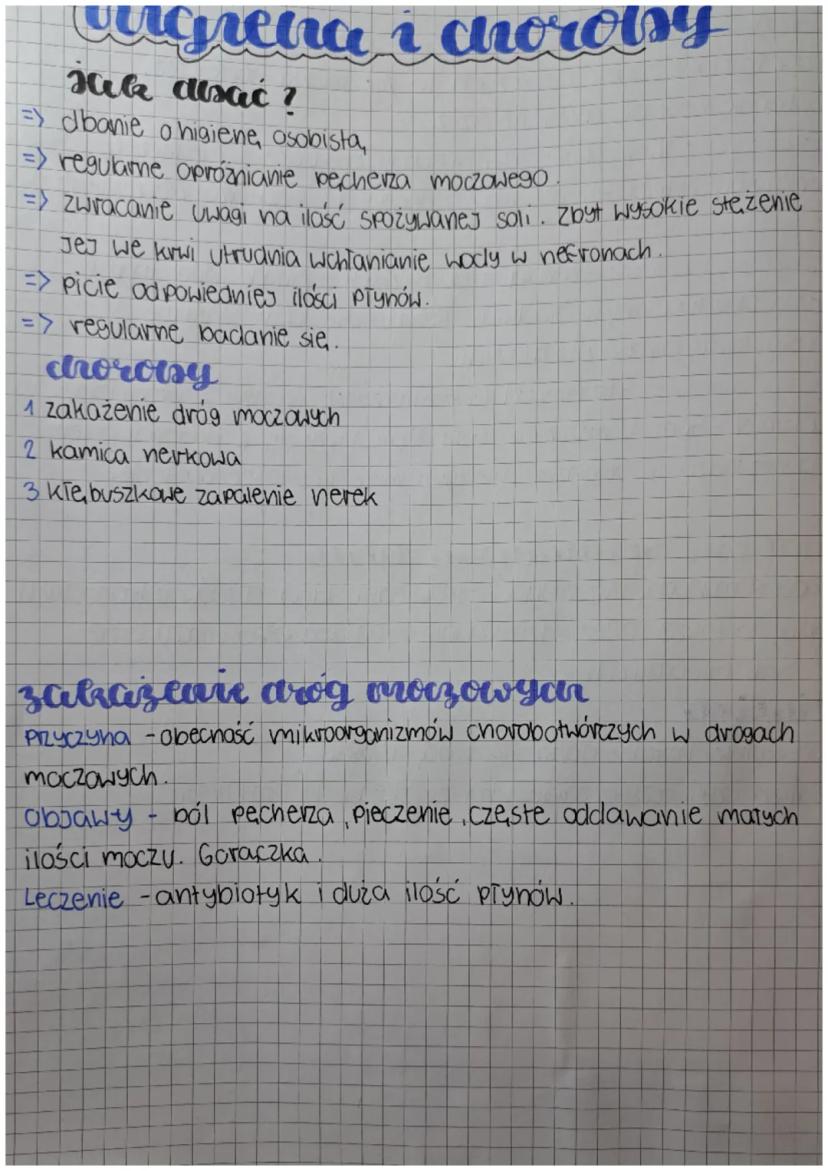 higiena i choroby
jak dbać?
=> dbanie o higienę osobistą
=> regularne opróżnianie pęcherza moczowego.
=> zwracanie uwagi na ilość spożywanej soli. Zbyt wysokie stężenie
jej we krwi utrudnia wchłanianie wody w nefronach.
=> picie odpowiedniej ilości płynów.
=> regularne badanie się.
choroby
1 zakażenie dróg moczowych
2 kamica nerkowa
3 kłębuszkowe zapalenie nerek
zakażenie dróg moczowych
Przyczyna - obecność mikroorganizmów chorobotwórczych w drogach
moczowych.
objawy - ból pęcherza, pieczenie, częste oddawanie małych
ilości moczu. Gorączka.
Leczenie - antybiotyk i duża ilość płynów.